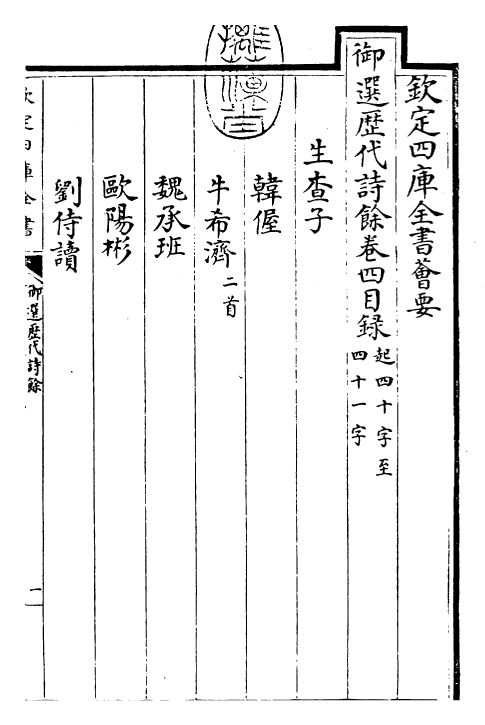 欽定四庫全書薈要
御選歷代詩餘卷四目録起四十字至四十一字
生查子
韓偓
牛希濟二首
魏承班
歐陽彬
劉侍讀
欽定四庫全書
御選歷代詩餘
一